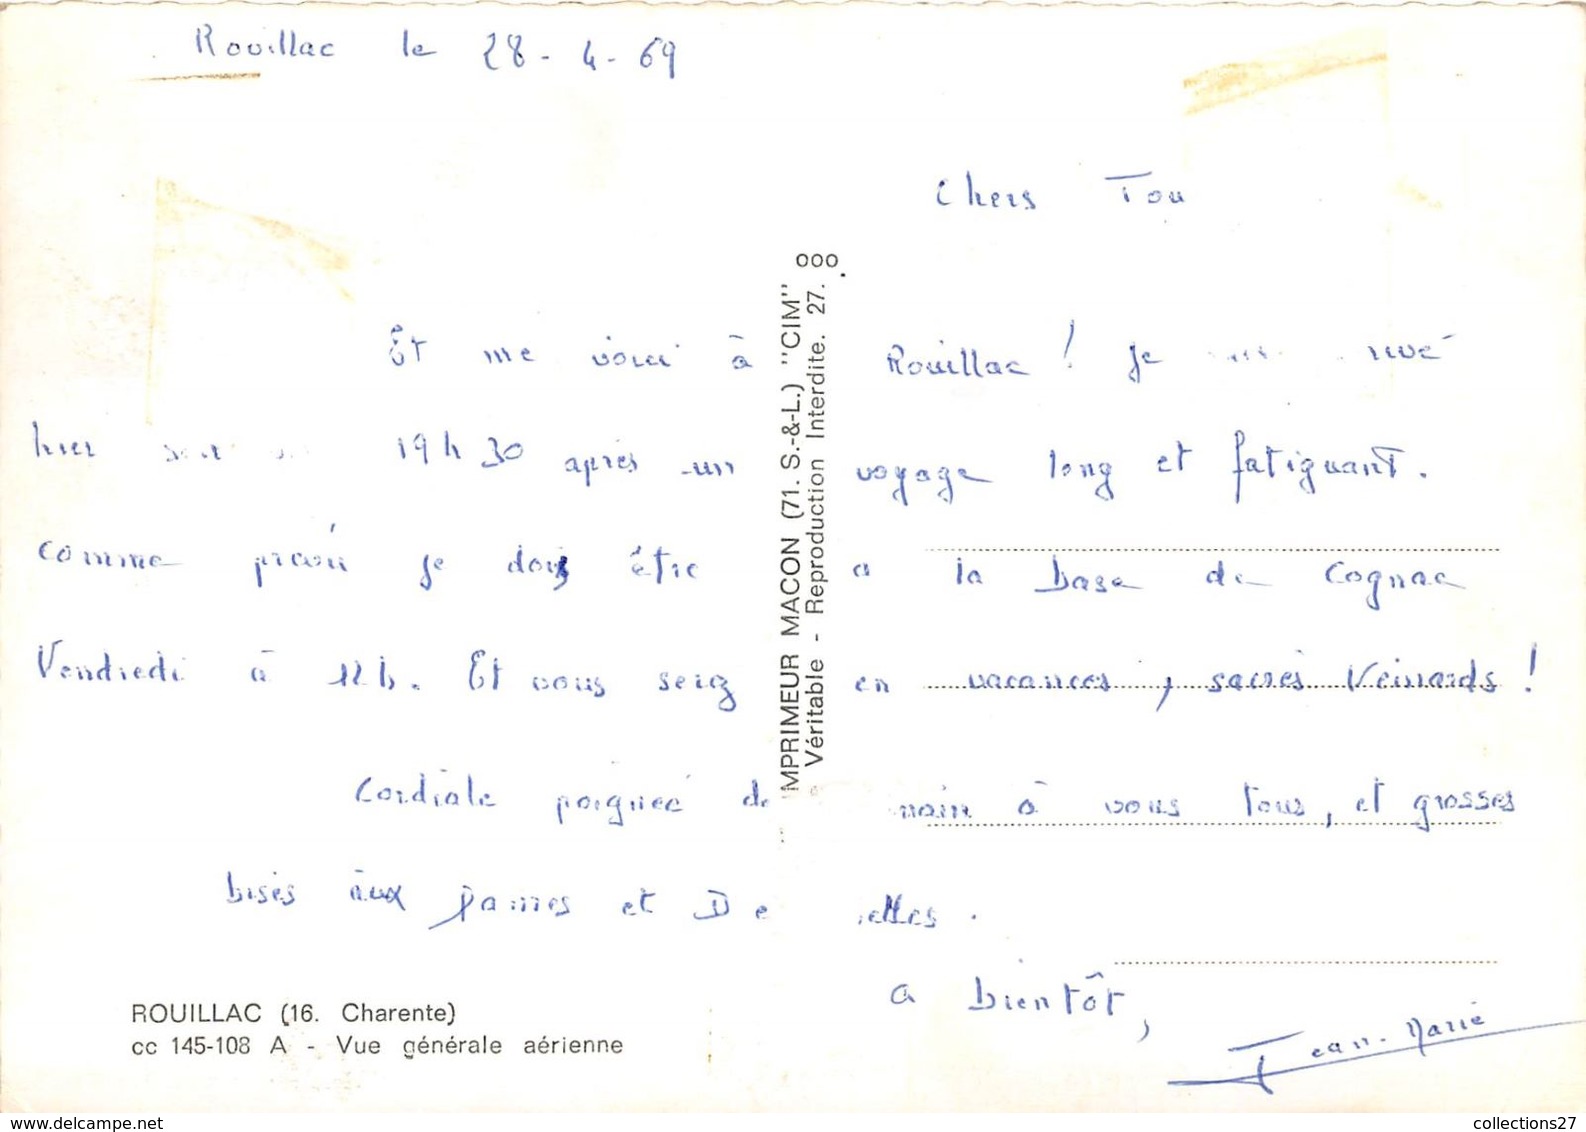 Rouillac le 28-4-69
Chers Tou
Et me voici à Rouillac ! Je
hier 19h30 après un voyage long et fatiguant.
comme prévu je dois être a la Base de Cognac
Vendredi à 12h. Et vous serez en vacances, sacrés Veinards !
Cordiale poignée de main à vous tous, et grosses
bises aux Dames et De elles.
a bientôt,
Jean-Marie
ROUILLAC (16. Charente)
cc 145-108 A - Vue générale aérienne
MPRIMEUR MACON (71. S.-&-L.) "CIM"
Véritable - Reproduction Interdite. 27. 000
collections27